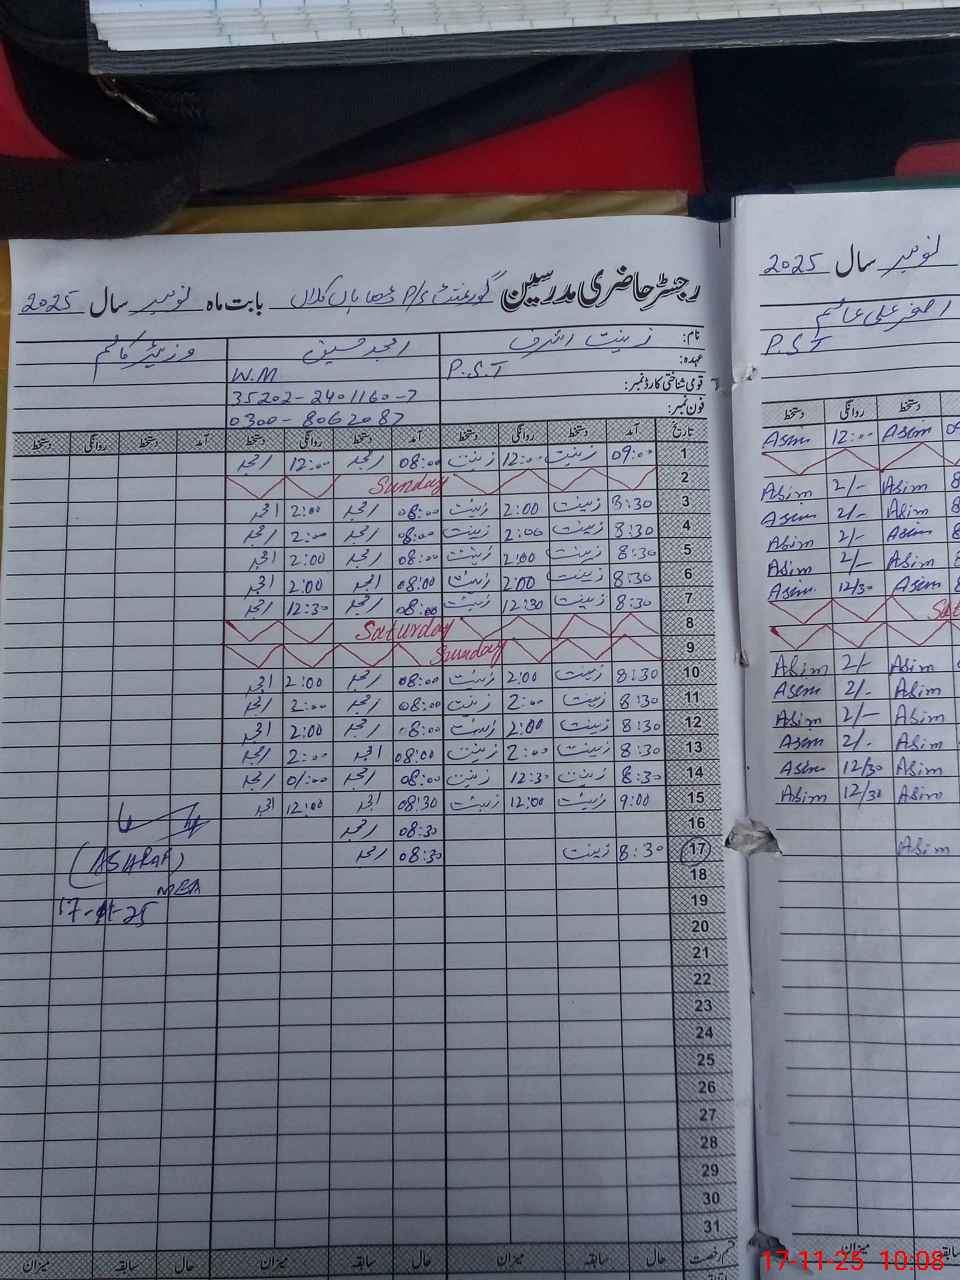 رجسٹر حاضری مدرسین گورنمنٹ P/S بابت ماہ نومبر سال 2025
نام: زینت اشرف امجد حسین وزیٹر کالم
عہدہ: P.S.T W.M
قومی شناختی کارڈ نمبر: 35202-2401160-7
فون نمبر: 0300-8062087
تاریخ آمد دستخط روانگی دستخط آمد دستخط روانگی دستخط آمد دستخط روانگی دستخط
1 09:00 زینت 12:00 زینت 08:00 امجد 12:00 امجد
2 Sunday
3 8:30 زینت 2:00 زینت 08:00 امجد 2:00 امجد
4 8:30 زینت 2:00 زینت 08:00 امجد 2:00 امجد
5 8:30 زینت 2:00 زینت 08:00 امجد 2:00 امجد
6 8:30 زینت 2:00 زینت 08:00 امجد 2:00 امجد
7 8:30 زینت 12:30 زینت 08:00 امجد 12:30 امجد
8 Saturday
9 Sunday
10 8:30 زینت 2:00 زینت 08:00 امجد 2:00 امجد
11 8:30 زینت 2:00 زینت 08:00 امجد 2:00 امجد
12 8:30 زینت 2:00 زینت 08:00 امجد 2:00 امجد
13 8:30 زینت 2:00 زینت 08:00 امجد 2:00 امجد
14 8:30 زینت 12:30 زینت 08:00 امجد 01:00 امجد
15 9:00 زینت 12:00 زینت 08:30 امجد 12:00 امجد
16 08:30 امجد
17 8:30 زینت 08:30 امجد
18
19
20
21
22
23
24
25
26
27
28
29
30
31
(ASHRAF)
MEA
17-11-25
حال سابقہ میزان حال سابقہ میزان حال سابقہ
نومبر سال 2025
اصغر علی عاصم
P.S.T
دستخط روانگی دستخط
Asim 12:00 Asim
Asim 2/- Asim
Asim 2/- Asim
Asim 2/- Asim
Asim 2/- Asim
Asim 12/30 Asim
Asim 2/- Asim
Asim 2/- Asim
Asim 2/- Asim
Asim 2/- Asim
Asim 12/30 Asim
Asim 12/30 Asim
Asim
میزان سابقہ
17-11-25 10:08